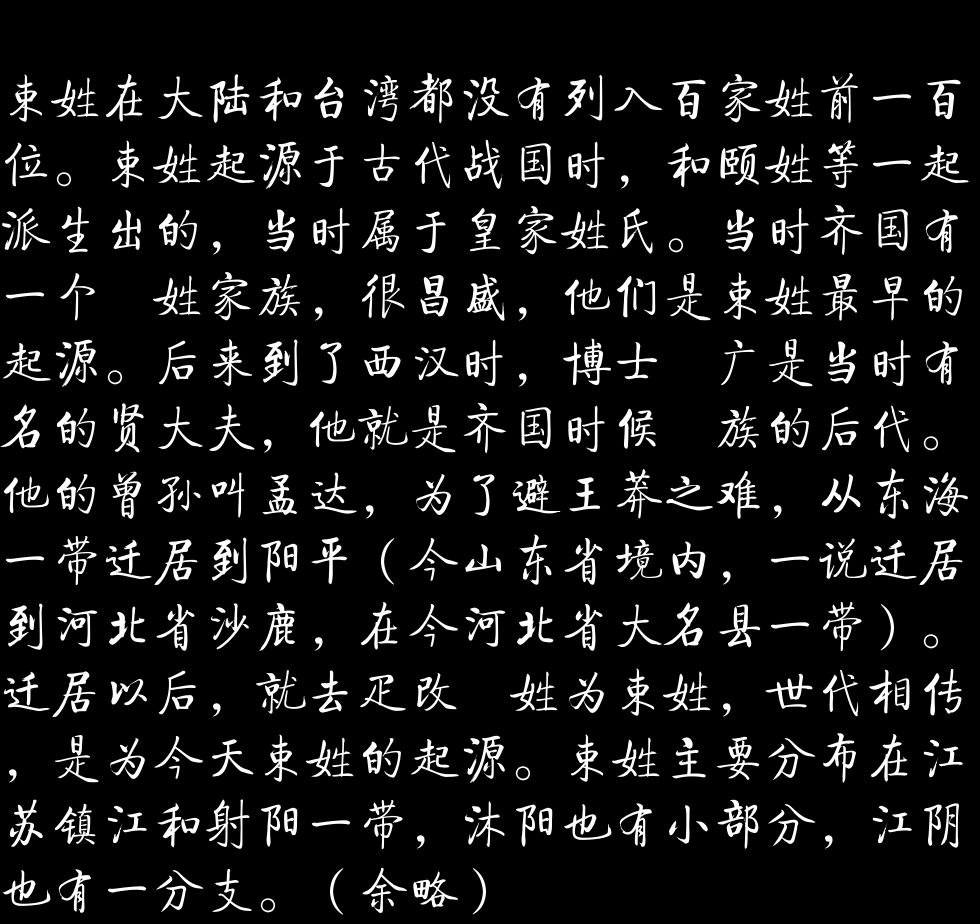 束姓在大陆和台湾都没有列入百家姓前一百
位。束姓起源于古代战国时，和颐姓等一起
派生出的，当时属于皇家姓氏。当时齐国有
一个　姓家族，很昌盛，他们是束姓最早的
起源。后来到了西汉时，博士　广是当时有
名的贤大夫，他就是齐国时候　族的后代。
他的曾孙叫孟达，为了避王莽之难，从东海
一带迁居到阳平（今山东省境内，一说迁居
到河北省沙鹿，在今河北省大名县一带）。
迁居以后，就去疋改　姓为束姓，世代相传
，是为今天束姓的起源。束姓主要分布在江
苏镇江和射阳一带，沐阳也有小部分，江阴
也有一分支。（余略）